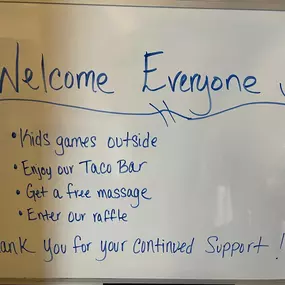 Welcome Everyone
• Kids games outside
• Enjoy our Taco Bar
• Get a free massage
• Enter our raffle
ank you for your continued Support !